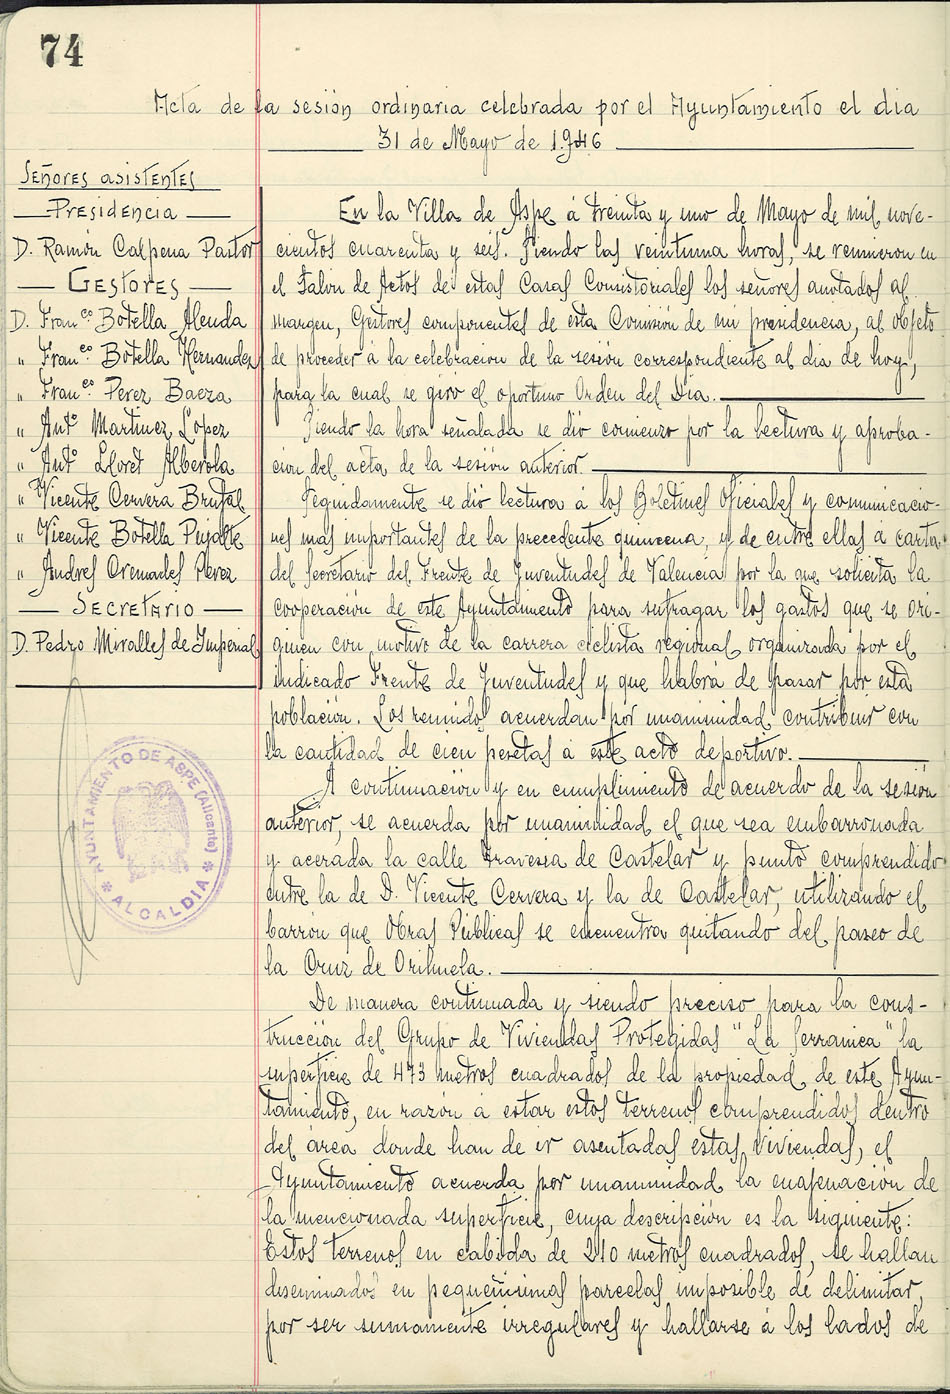 74
Acta de la sesión ordinaria celebrada por el Ayuntamiento el dia
31 de Mayo de 1946
Señores asistentes
Presidencia
D. Ramón Calpena Pastor
Gestores
D. Fran.co Botella Alenda
" Fran.co Botella Hernandez
" Fran.co Perez Baeza
" Ant.o Martinez López
" Ant.o Lloret Alberola
" Vicente Cervera Brutal
" Vicente Botella Pujalte
" Andres Cremades Perez
Secretario
D. Pedro Miralles de Imperial
AYUNTAMIENTO DE ASPE (Alicante)
* ALCALDIA *
En la Villa de Aspe á treinta y uno de Mayo de mil nove-
cientos cuarenta y seis. Siendo las veintiuna horas, se reunieron en
el Salon de Actos de estas Casas Consistoriales los señores anotados al
margen, Gestores componentes de esta Comisión de mi presidencia, al objeto
de proceder á la celebracion de la sesión correspondiente al dia de hoy,
para la cual se giró el oportuno Orden del Dia.
Siendo la hora señalada se dió comienzo por la lectura y aproba-
cion del acta de la sesión anterior.
Seguidamente se dió lectura á los Boletines Oficiales y comunicacio-
nes más importantes de la precedente quincena, y de entre ellas á carta
del Secretario del Frente de Juventudes de Valencia por la que solicita la
cooperación de este Ayuntamiento para sufragar los gastos que se ori-
ginen con motivo de la carrera ciclista regional organizada por el
indicado Frente de Juventudes y que habrá de pasar por esta
población. Los reunidos acuerdan por unanimidad contribuir con
la cantidad de cien pesetas á este acto deportivo.
A continuación y en cumplimiento de acuerdo de la sesión
anterior, se acuerda por unanimidad el que sea embarronada
y acerada la calle Travesia de Castelar y punto comprendido
entre la de D. Vicente Cervera y la de Castelar, utilizando el
barrón que Obras Públicas se encuentra quitando del paseo de
la Cruz de Orihuela.
De manera continuada y siendo preciso para la cons-
trucción del Grupo de Viviendas Protegidas "La Serranica" la
superficie de 473 metros cuadrados de la propiedad de este Ayun-
tamiento, en razón á estar estos terrenos comprendidos dentro
del área donde han de ir asentadas estas viviendas, el
Ayuntamiento acuerda por unanimidad la enajenación de
la mencionada superficie, cuya descripción es la siguiente:
Estos terrenos en cabida de 210 metros cuadrados, se hallan
diseminados en pequeñisimas parcelas imposible de delimitar,
por ser sumamente irregulares y hallarse á los lados de